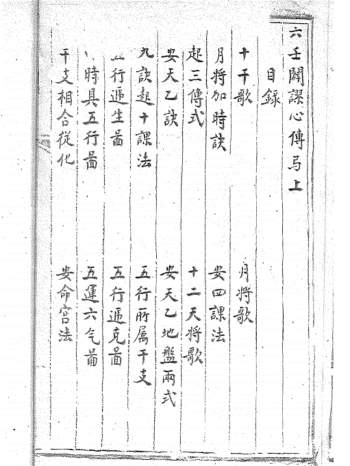 六壬闢課心傳马上
目録
十干歌　月將歌
月將加時訣　安四課法
起三傳式　十二天將歌
安天乙訣　安天乙地盤兩式
九訣起十課法　五行所属干支
五行遁生啚　五行遁克啚
時具五行啚　五運六气啚
干支相合從化　安命宫法